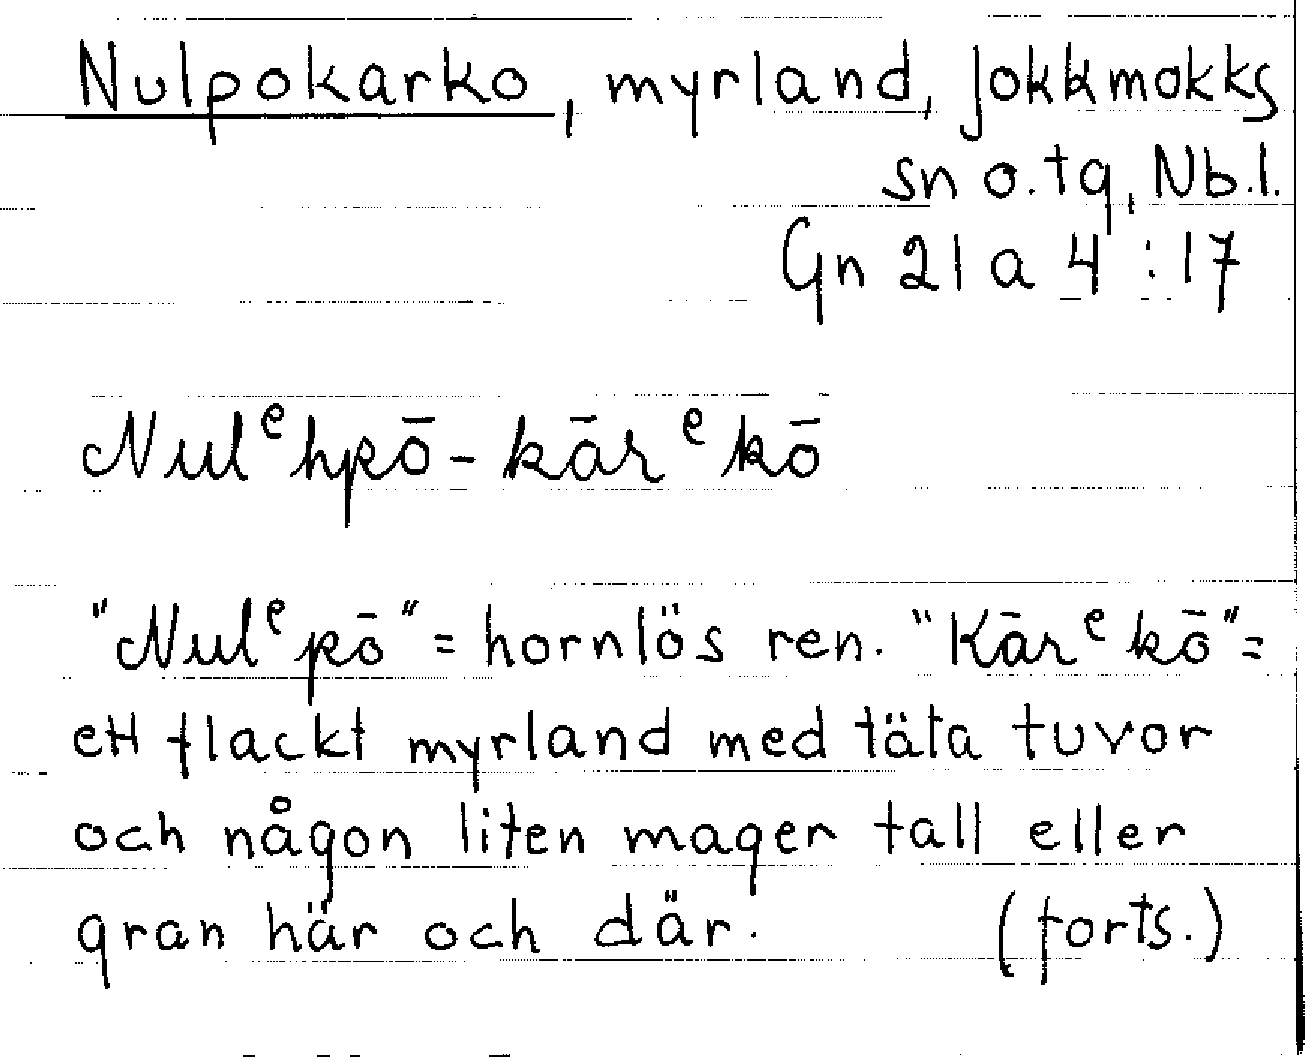 Nulpokarko, myrland, Jokkmokks
sn o. tg, Nb.l.
Gn 21 a 4 : 17
Nulᵉhpō-kārᵉkō
"Nulᵉpō" = hornlös ren. "Kārᵉkō" =
ett flackt myrland med täta tuvor
och någon liten mager tall eller
gran här och där. (forts.)